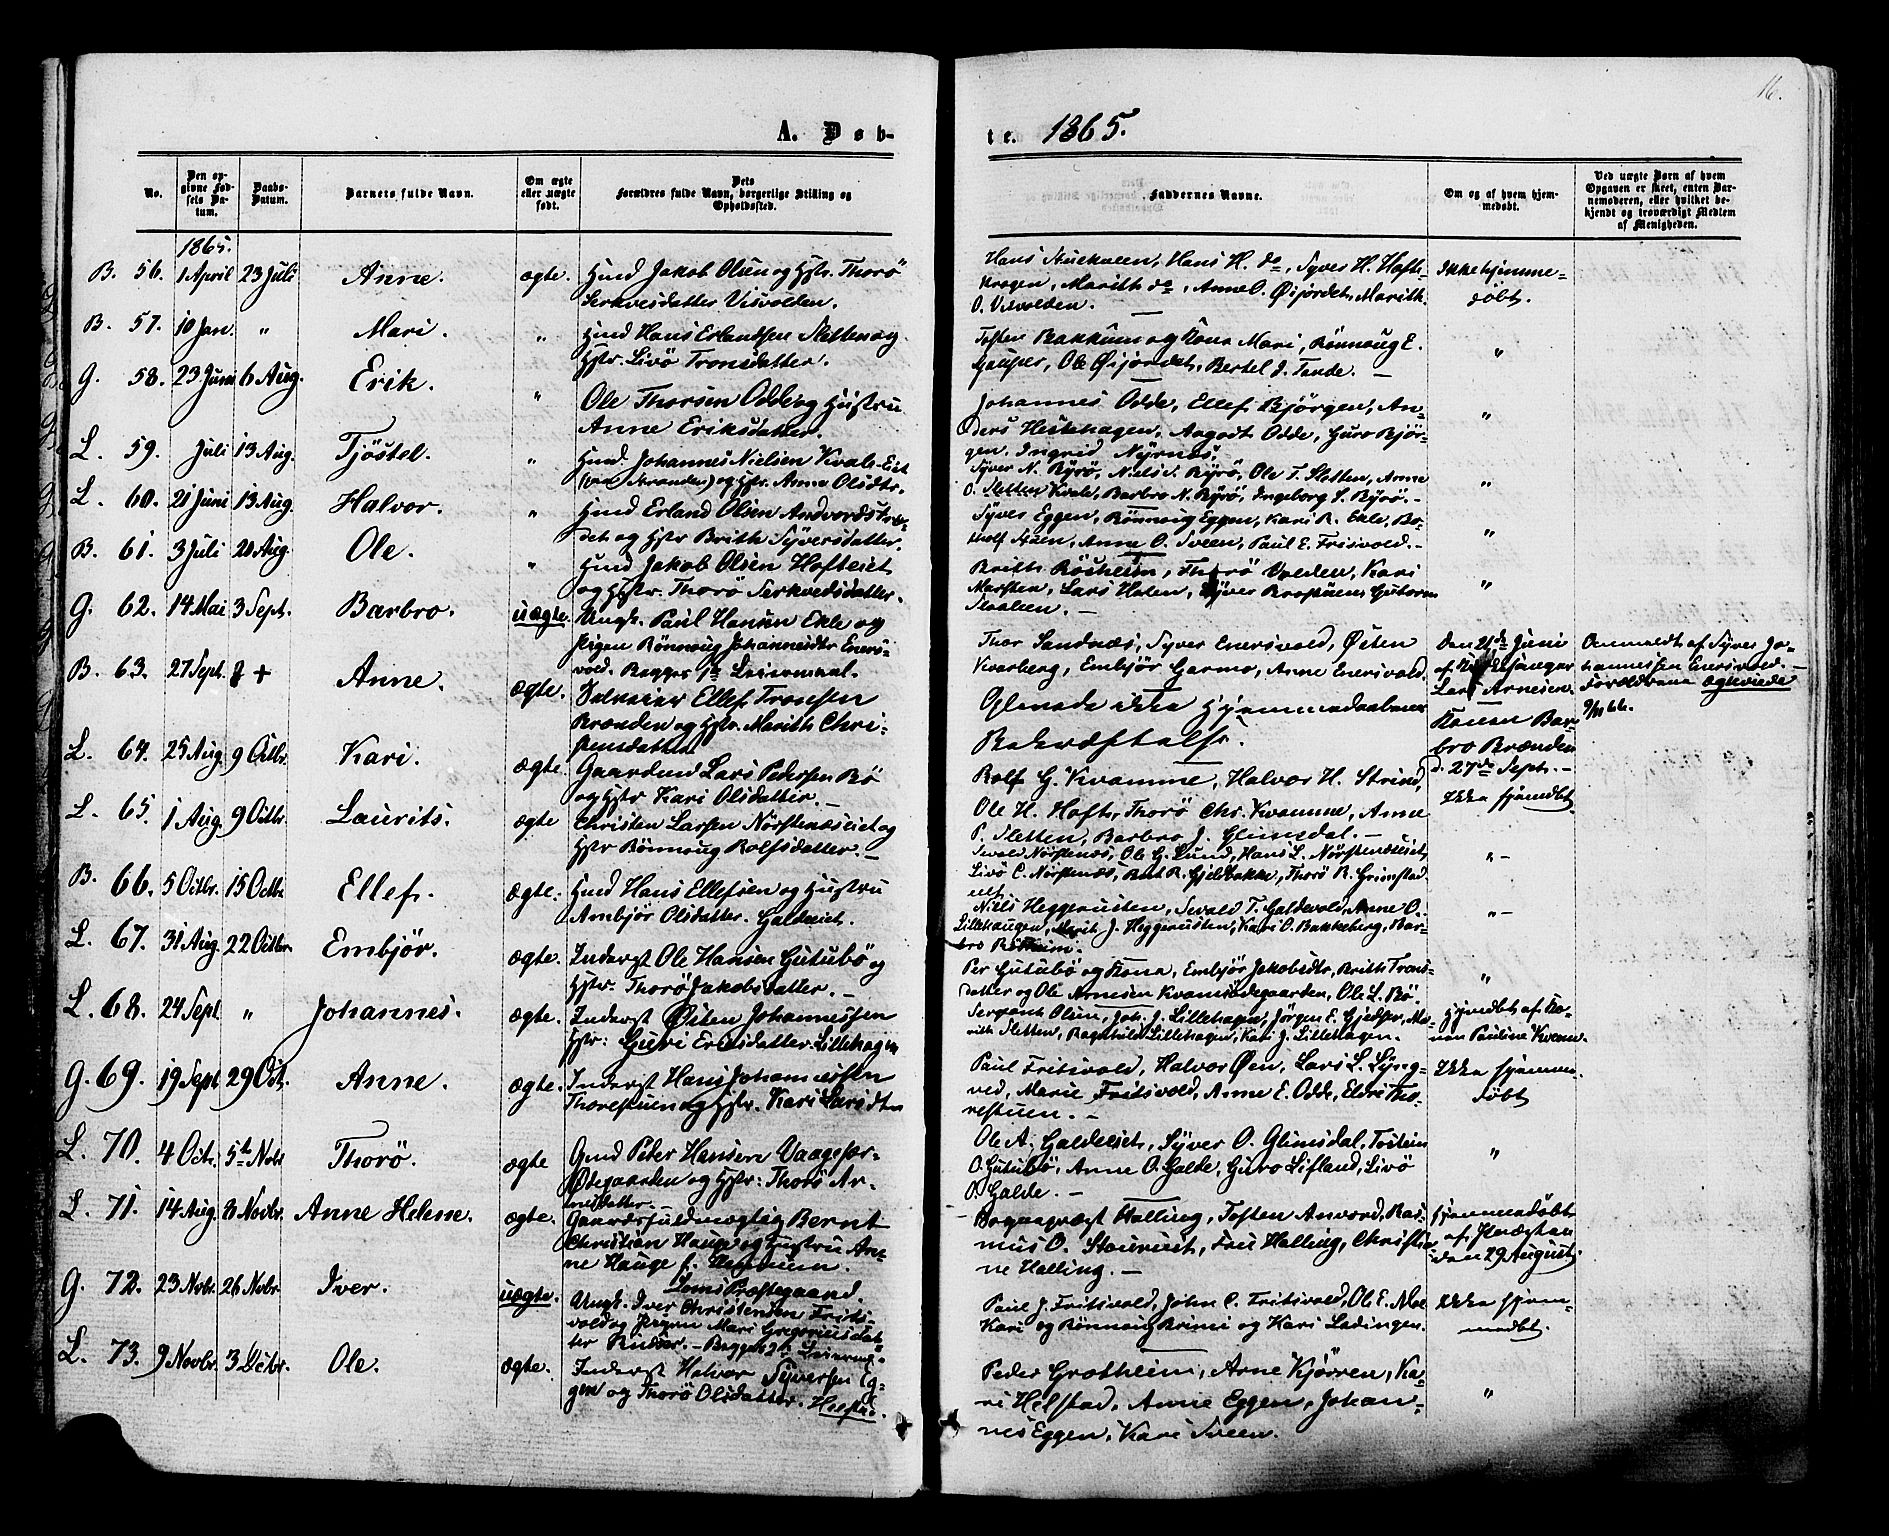 16.
A. Døb-
te. 1865.
No.
Den op-
givne Fød-
sels Da-
tum.
Daabs-
Datum.
Barnets fulde Navn.
Om ægte
eller uægte
født.
Dets
Forældres fulde Navn, borgerlige Stilling og
Opholdssted.
Faddernes Navne.
Om og af hvem hjem-
medøbt.
Ved uægte Børn af hvem
Opgaven er skeet, enten Bar-
nemoderen, eller hvilket be-
kjendt og troværdigt Medlem
af Menigheden.
1865.
B. 56. 1 April 23 Juli Anne. ægte.
Hmd Jakob Olsen og Hstr. Thorö
Serkvesdatter Visvolden.
Hans H. do, Syver H. Hoft-
Kragen, Marith do, Anne O. Øijordet, Marith
O. Visvolden.
Ikke hjemme-
døbt.
B. 57. 10 Jan. " Mari. "
Hmd Hans Erlandsen Sletten og
Hstr. Livö Tronsdatter.
Tosten Bakkum og Kona Mari, Rönnoug E.
Gjeisper, Ole Øijordet, Bertel J. Tande.
"
G. 58. 23 Juni 6 Aug. Erik. "
Ole Thorsen Odde og Hustru
Anne Eriksdatter.
Johannes Odde, Ellef Bjørgen, An-
ders Hestehagen, Aagodt Odde, Guro Bjør-
gen, Ingrid Nyrnes.
"
L. 59. Juli 13 Aug. Tjöstel. "
Hmd. Johannes Nielsen Kvale-Eiet
og Hstr. Anna Olsdtr.
Syver N. Ryrö, Niels S. Ryrö, Ole T. Sletten, Anne
O. Sletten Kvale, Barbro N. Ryrö, Ingeborg S. Ryrö.
"
L. 60. 21 Juni 13 Aug. Halvor. "
Hmd Erland Olsen Andvord
og Hstr Brith Syversdatter.
Syver Eggen, Rönnoug Eggen, Kari R. Ekle, Bo-
tholf Sveen, Anne O. Sveen, Paul E. Frisvold.
"
B. 61. 3 Juli 20 Aug. Ole. "
Hmd Jakob Olsen Hofteiet
og Hstr. Thorö Serkvedsdatter.
Brith Röisheim, Thorö Volden, Kari
Marsten, Lars Holen, Syver
"
G. 62. 14 Mai 3 Sept. Barbro. uægte.
Ungk. Paul Hansen Ekle og
Pigen Rönnoug Johannesdtr Eners-
vold. Begges 1ste Leiermaal.
Thor Sandnæs, Syver Enersvold, Østen
Kvarberg, Embjør Garmo, Anne Enersvold.
Den 21de Juni
af Kirkesanger
Lars Arnesen.
Anmeldt af Syver Jo-
hannessen Enersvold.
Forældrene ægteviede
9/11 66.
B. 63. 27 Sept. + Anne. ægte.
Selveier Ellef Tronsen
Brænden og Hstr. Marith Chri-
stensdatter
Opnaade ikke Hjemmedaabens
Bekræftelse.
Konen Bar-
bro Brænden
d. 27de Sept.
L. 64. 25 Aug. 9 Octbr. Kari. ægte.
Gaardmd Lars Pedersen Bö
og Hstr Kari Olsdatter.
Rolf G. Kvamme, Halvor H. Strind,
Ole H. Hoft, Thorö Chr. Kvamme, Anne
P. Sletten, Barbro J. Glimsdal.
Ikke hjmdbt.
L. 65. 1 Aug. 9 Octbr. Laurits. ægte
Christen Larsen Nörstenæseiet og
Hstr Rönnoug Rolfsdatter.
Sevald Nörstenæs, Ole G. Lund, Hans L. Nörstenæseiet,
Livö C. Nörstenæs, Brit R. Gjeldbakke, Thorö R. Grimstad
eiet
"
B. 66. 5 Octbr. 15 Octbr. Ellef. ægte.
Hmd Hans Ellefsen og Hustru
Ambjör Olsdatter. Galdeeiet.
Niels Heggerusten, Sevald T. Galdevold, Anne O.
Lillehaugen, Marit J. Heggerusten, Kari O. Bakkeberg, Bar-
bro Röisheim.
"
L. 67. 31 Aug. 22 Octbr. Embjör. ægte.
Inderst Ole Hansen Gutubö og
Hstr. Thorö Jakobsdatter.
Per Gutubö og Kona, Embjör Jakobsdtr, Brith Trons-
datter og Ole Arnesen Kvamsödegaarden, Ole L. Bö.
"
L. 68. 24 Sept. " Johannes. ægte.
Inderst Østen Johannessen
Hstr: Guri Eriksdatter Lillehagen
Sergeant Olsen, Joh. J. Lillehagen, Jörgen E. Gjedsper, Ma-
rith Sletten, Ragnhild Lillehagen, Kari J. Lillehagen.
hjmdbt af Ko-
nen Pauline Kvam.
G. 69. 19 Sept. 29 Oct. Anne. ægte.
Inderst Hans Johannessen
Thorestuen og Hstr. Kari Larsdtr
Paul Fritsvold, Halvor Øen, Lars L. Lyng-
ved, Marie Fritsvold, Anne E. Odde, Eldri Tho-
restuen.
Ikke hjemme-
døbt
L. 70. 4 Oct. 5te Novbr Thorö. ægte
Gmd Peter Hansen Vaagesør-
Ødegaarden og Hstr: Thorö Ar-
nesdatter.
Ole A. Galdeeiet, Syver O. Glimsdal, Tostein
O. Gutubö, Anne O. Galde, Guro Lifland, Livö
O. Galde.
"
L. 71. 14 Aug. 8 Novbr. Anne Helene. ægte.
Gaardsfuldmægtig Bernt
Christian Hauge og Hustru An-
ne Hauge f.
Loms Præstegaard.
Sognepræst Halling, Tosten Anvord, Ras-
mus O. Stoureiet, Fru Halling, Christia-
ne Halling.
hjemmedøbt
af Præsten
den 29 August.
G. 72. 23 Novbr. 26 Novbr. Iver. uægte.
Ungk. Iver Christensen Frits-
vold og Pigen Mari Gregoriusdat-
ter Runder. Begges 1ste Leiermål.
Paul J. Fritsvold, John C. Fritsvold, Ole E. Moe
Kari og Rönnoug Brimi og Kari Ladingen.
Ikke hjem-
medbt.
L. 73. 9 Novbr. 3 Dcbr. Ole. ægte.
Inderst Halvor Syversen Eg-
gen og Thorö Olsdatter. Hustru.
Peder Grotheim, Arne Kjörren, Ka-
ri Helstad, Anne Eggen, Johan-
nes Eggen, Kari Sveen.
"